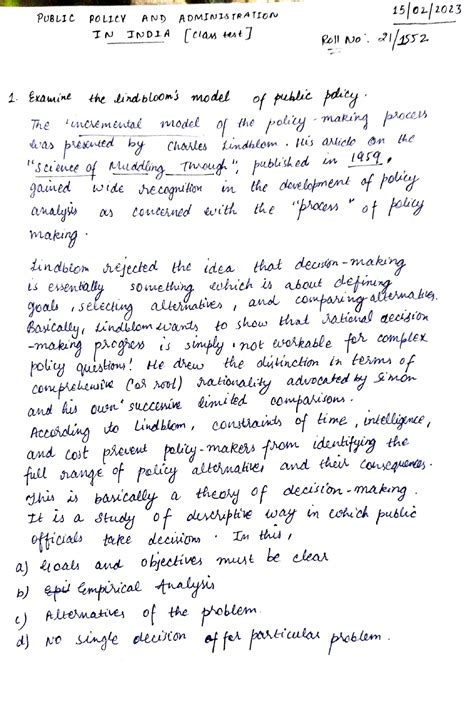 15/02/2023
PUBLIC POLICY AND ADMINISTRATION
IN INDIA [Class test]
Roll No: 21/1552
1. Examine the lindbloom's model of public policy.
The 'incremental model of the policy-making process
was presented by Charles Lindblom. His article on the
"Science of Muddling Through", published in 1959,
gained wide recognition in the development of policy
analysis as concerned with the "process" of policy
making.
Lindblom rejected the idea that decision-making
is essentially something which is about defining
goals, selecting alternatives, and comparing alternatives.
Basically, Lindblom wants to show that rational decision
-making progress is simply 'not workable for complex
policy questions! He drew the distinction in terms of
comprehensive (or root) rationality advocated by Simon
and his own 'successive limited comparisons.
According to Lindblom, constraints of time, intelligence,
and cost prevent policy-makers from identifying the
full range of policy alternatives and their consequences.
This is basically a theory of decision-making.
It is a study of descriptive way in which public
officials take decisions. In this,
a) Goals and objectives must be clear
b) Empirical Analysis
c) Alternatives of the problem.
d) No single decision of for particular problem.